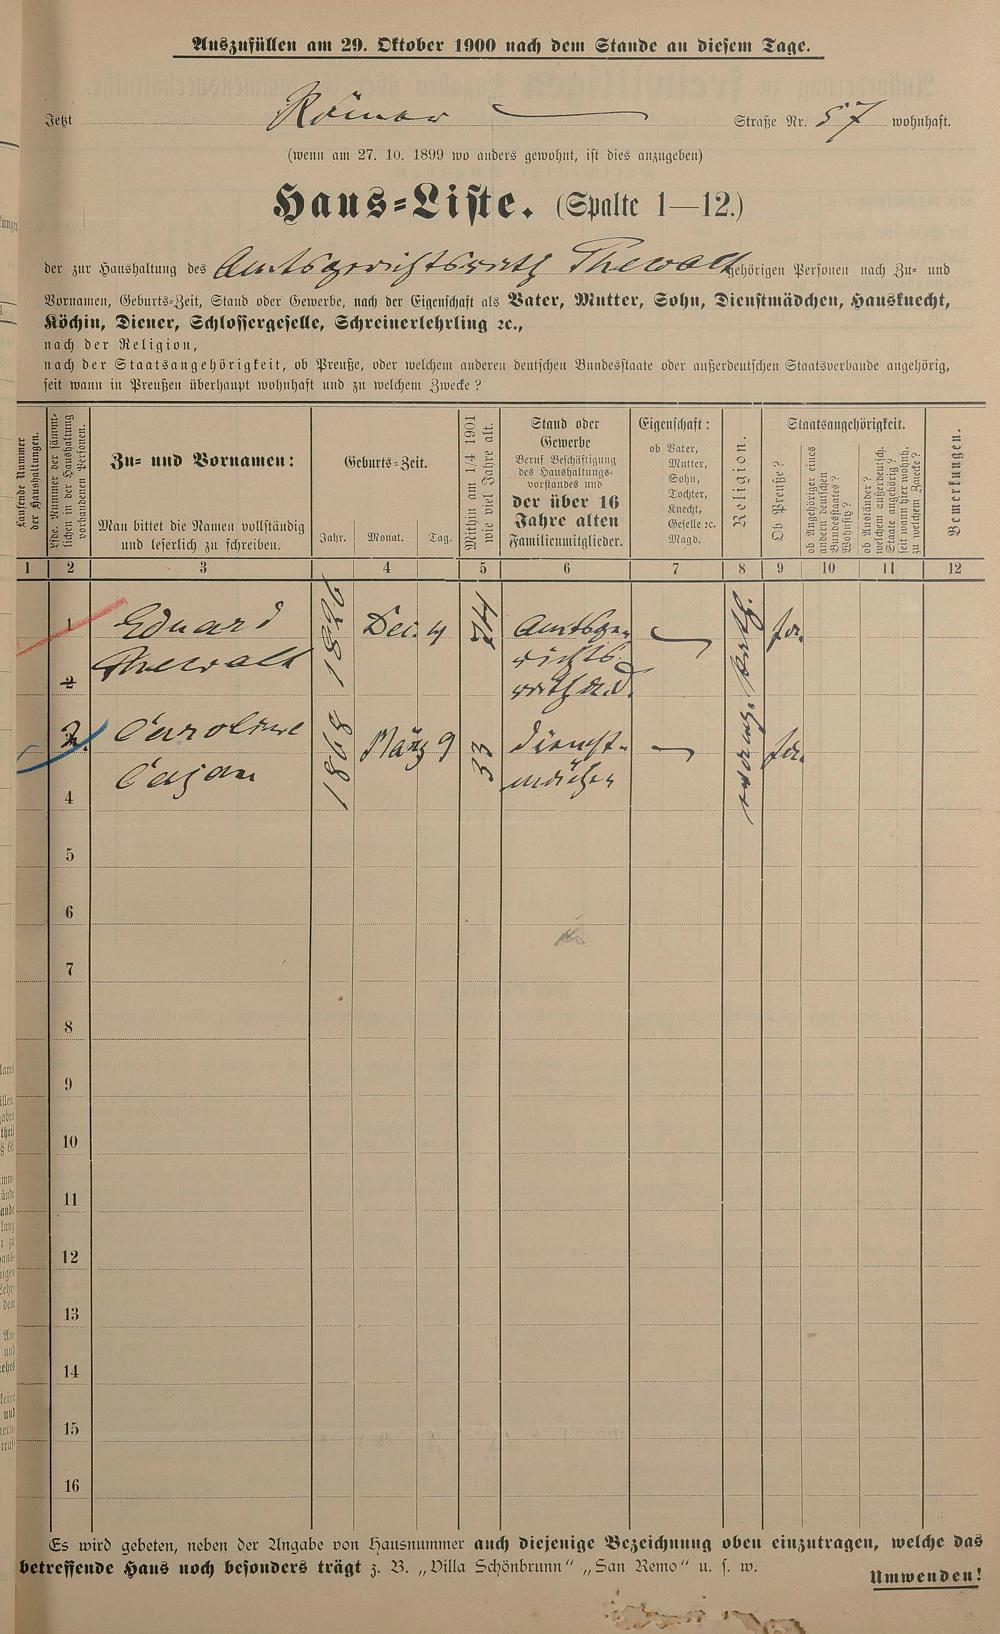 Auszufüllen am 29. Oktober 1900 nach dem Stande an diesem Tage.
Jetzt Römer Straße Nr. 57 wohnhaft.
(wenn am 27. 10. 1899 wo anders gewohnt, ist dies anzugeben)
Haus-Liste. (Spalte 1—12.)
der zur Haushaltung des Amtsgerichtsrath Thewalt gehörigen Personen nach Zu- und
Vornamen, Geburts-Zeit, Stand oder Gewerbe, nach der Eigenschaft als Vater, Mutter, Sohn, Dienstmädchen, Hausknecht,
Köchin, Diener, Schlossergeselle, Schreinerlehrling ꝛc.,
nach der Religion,
nach der Staatsangehörigkeit, ob Preuße, oder welchem anderen deutschen Bundesstaate oder außerdeutschen Staatsverbande angehörig,
seit wann in Preußen überhaupt wohnhaft und zu welchem Zwecke?
Laufende Nummer
der Haushaltungen.
Lfde. Nummer der sämmt-
lichen in der Haushaltung
vorhandenen Personen.
Zu- und Vornamen:
Man bittet die Namen vollständig
und leserlich zu schreiben.
Geburts-Zeit.
Jahr. Monat. Tag.
Mithin am 1/4 1901
wie viel Jahre alt.
Stand oder
Gewerbe
Beruf Beschäftigung
des Haushaltungs-
vorstandes und
der über 16
Jahre alten
Familienmitglieder.
Eigenschaft:
ob Vater,
Mutter,
Sohn,
Tochter,
Knecht,
Geselle ꝛc.
Magd.
Religion.
Staatsangehörigkeit.
Ob Preuße?
ob Angehöriger eines
andern deutschen
Bundesstaates?
Wohnsitz?
ob Ausländer?
welchem außerdeutsch.
Staate angehörig?
seit wann hier wohnh.
zu welchem Zwecke?
Bemerkungen.
1 2 3 4 5 6 7 8 9 10 11 12
1 Eduard 1826 Dez. 4 74 Amtsge- kath. ja.
2 Thewalt richts-
rath a.D.
2. Caroline 1868 März 9 33 Dienst- evang. ja.
4 Cajan mädchen
5
6
7
8
9
10
11
12
13
14
15
16
Es wird gebeten, neben der Angabe von Hausnummer auch diejenige Bezeichnung oben einzutragen, welche das
betreffende Haus noch besonders trägt z. B. „Villa Schönbrunn“ „San Remo“ u. s. w.
Umwenden!